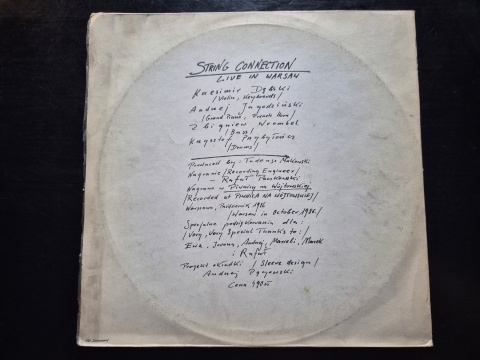 STRING CONNECTION
LIVE IN WARSAW
Krzesimir Dębski
/Violin, Keyboards/
Andrzej Jagodziński
/Grand Piano, French Horn/
Zbigniew Wrombel
/Bass/
Krzysztof Przybyłowicz
/Drums/
Produced by: Tadeusz
Nagranie /Recording Engineer/
- Rafał Paczkowski
Nagrano w Piwnicy na Wójtowskiej
/Recorded at PIWNICA NA WÓJTOWSKIEJ/
Warszawa, Październik 1986
/Warsaw in October, 1986/
Specjalne podziękowania dla:
/Very, Very Special Thanks to:/
Ewa, Iwona, Andrzej, Marceli, Marek
i Rafał
Projekt okładki /Sleeve design/
Andrzej Pągowski
Cena 490 zł